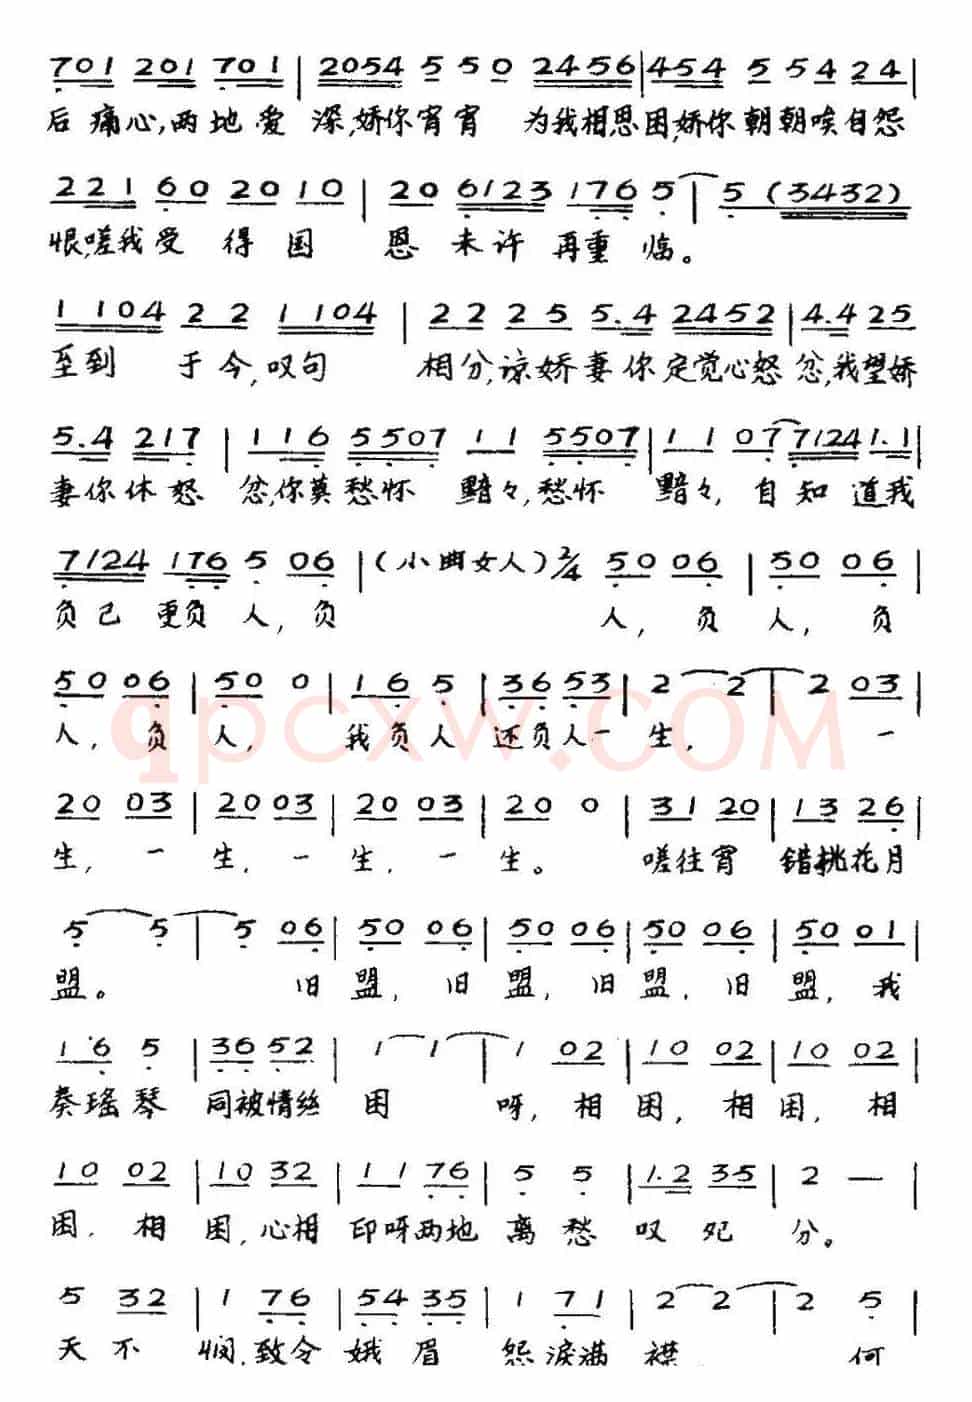 701 201 701 | 2054 5 5 0 2456 | 454 5 54 24 |
后痛心,两地爱 深,娇你宵宵 为我相思困,娇你朝朝唉自怨
221 60 20 10 | 20 6123 176 5 | 5 (3432)
恨,嗟我受 得国 恩 未许 再重临。
1 104 2 2 1 104 | 2 2 2 5 5.4 2452 | 4.4 25
至到 于今,叹句 相分,谅娇妻你定觉心怒 忿,我望娇
5.4 217 | 116 5507 11 5507 | 11 07 7124 1.1 |
妻你休怒 忿,你莫愁怀 黯々,愁怀 黯々,自知道我
7124 176 5 06 | (小曲女人) 2/4 50 06 | 50 06 |
负己 更负人,负 人,负 人,负
50 06 | 50 0 | 16 5 | 36 53 | 2 2 | 2 03
人,负 人, 我负人 还负人一 生, 一
20 03 | 20 03 | 20 03 | 20 0 | 31 20 | 13 26
生,一 生,一 生,一 生。 嗟往宵 错挑花月
5 5 | 5 06 | 50 06 | 50 06 | 50 06 | 50 01 |
盟。 旧 盟,旧 盟,旧 盟,旧 盟,我
16 5 | 36 52 | 1 1 | 1 02 | 10 02 | 10 02 |
奏瑶琴 同被情丝 困 呀,相 困,相 困,相
10 02 | 10 32 | 11 76 | 5 5 | 1.2 35 | 2 — |
困,相 困,心相 印呀两地 离愁 叹 分。
5 32 | 1 76 | 54 35 | 1 71 | 2 2 | 2 5 |
天不 悯,致令 娥眉 怨泪满 襟 何
qpcxw.COM